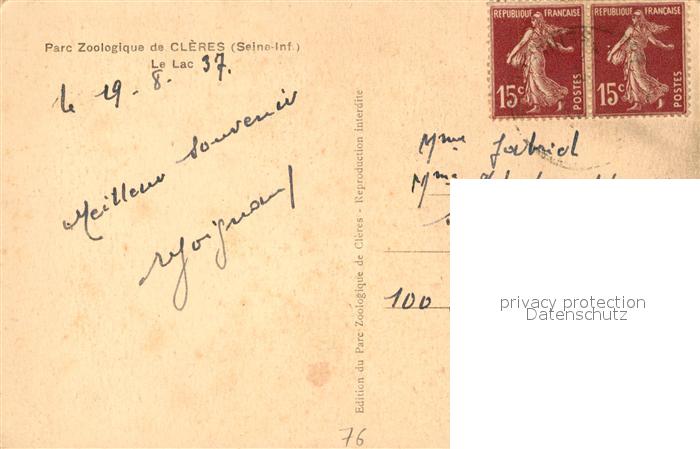 Parc Zoologique de CLÈRES (Seine-Inf.)
Le Lac
le 19-8-37.
Meilleur Souvenir
Edition du Parc Zoologique de Clères - Reproduction interdite
REPUBLIQUE FRANÇAISE
15c
POSTES
REPUBLIQUE FRANÇAISE
15c
POSTES
Mme Gabriel
Mme
100
privacy protection
Datenschutz
76